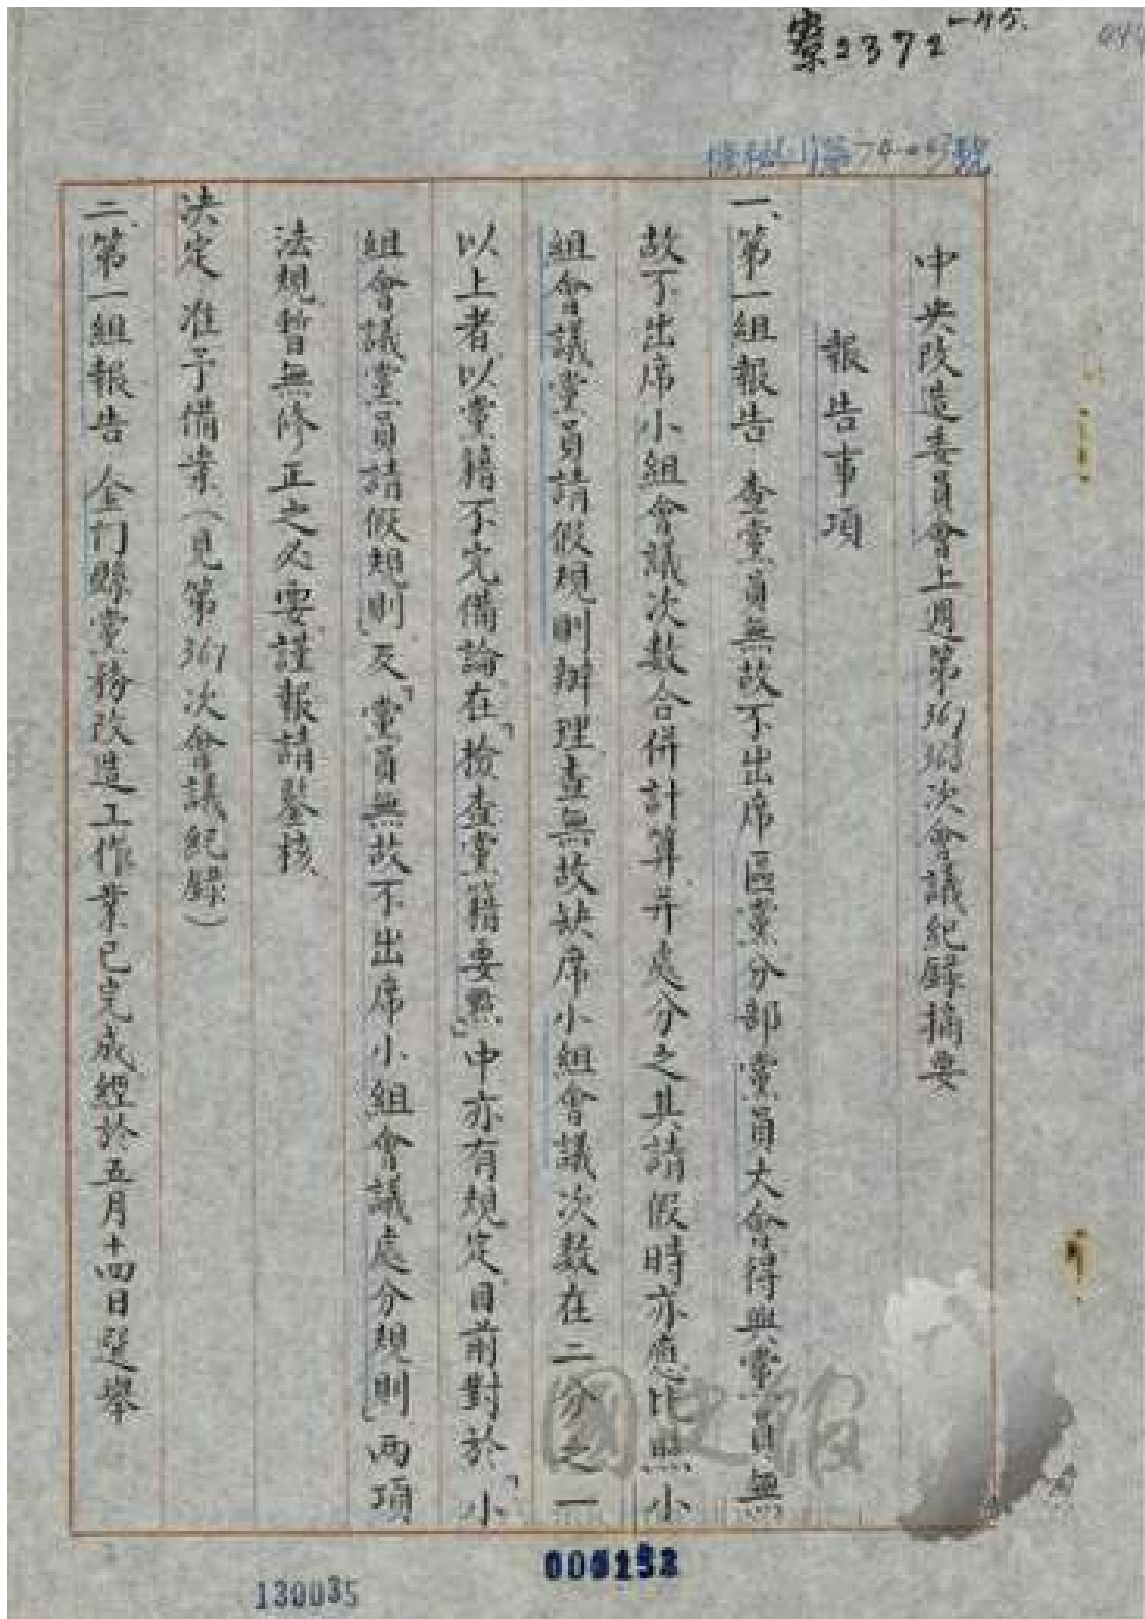 案2372
中央改造委員會上週第367 368次會議紀錄摘要
報告事項
一、第一組報告 查黨員無故不出席區黨分部黨員大會得與黨員無
故不出席小組會議次數合併計算并處分之其請假時亦應比照小
組會議黨員請假規則辦理查無故缺席小組會議次數在二分之一
以上者以黨籍不完備論在「檢查黨籍要點」中亦有規定目前對於「小
組會議黨員請假規則」及「黨員無故不出席小組會議處分規則」兩項
法規暫無修正之必要謹報請鑒核
決定 准予備案(見第367次會議紀錄)
二、第一組報告 金門縣黨務改造工作業已完成經於五月十四日選舉
國史館
000252
130035